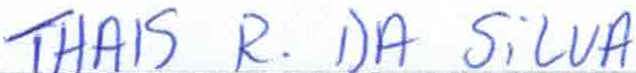 THAIS R. DA SiLVA